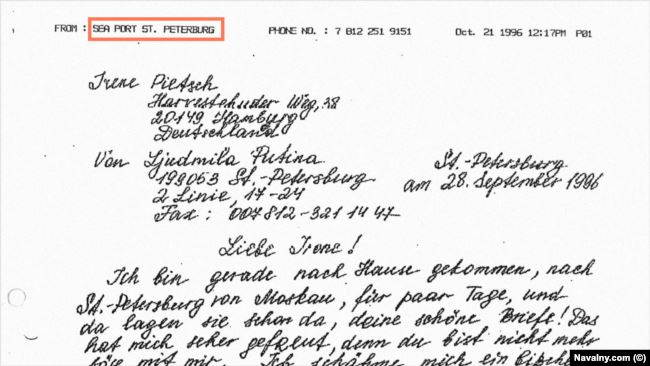 FROM : SEA PORT ST. PETERBURG PHONE NO. : 7 812 251 9151 Oct. 21 1996 12:17PM P01
Irene Pietsch
Harvestehuder Weg, 38
20149 Hamburg
Deutschland
Von Ljudmila Putina St.-Petersburg
199053 St.-Petersburg am 28. September 1996
2 Linie, 17-24
Fax: 007812-321 14 47
Liebe Irene!
Ich bin gerade nach Hause gekommen, nach
St.-Petersburg von Moskau, für paar Tage, und
da lagen sie schon da, deine schöne Briefe! Das
hat mich seher gefreut, denn du bist nicht mehr
böse mit mir. Ich schähme mich ein
Navalny.com (©)